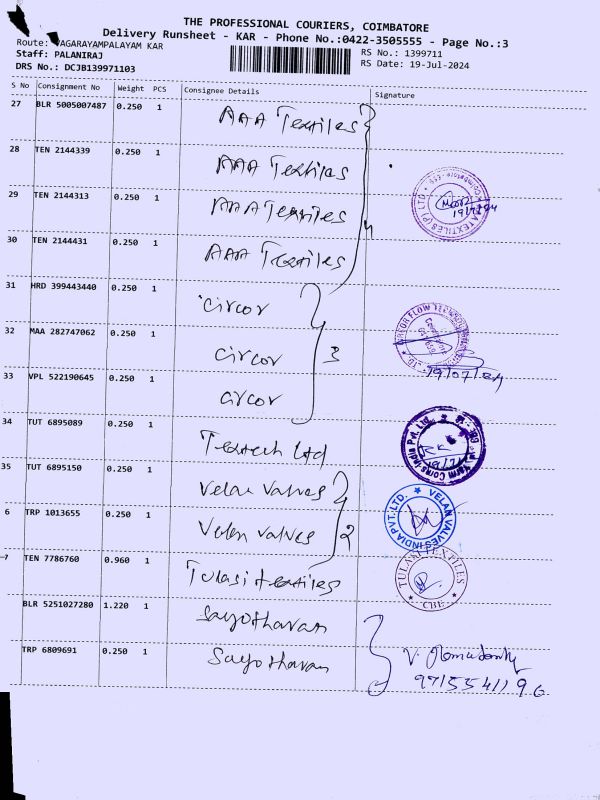 THE PROFESSIONAL COURIERS, COIMBATORE
Delivery Runsheet - KAR - Phone No.:0422-3505555 - Page No.:3
Route: AGARAYAMPALAYAM KAR
RS No.: 1399711
Staff: PALANIRAJ
RS Date: 19-Jul-2024
DRS No.: DCJB139971103
S No Consignment No Weight PCS Consignee Details Signature
27 BLR 5005007487 0.250 1 AAA Textiles
28 TEN 2144339 0.250 1 AAA Textiles
29 TEN 2144313 0.250 1 AAA Textiles
30 TEN 2144431 0.250 1 AAA Textiles
4
31 HRD 399443440 0.250 1 Circor
32 MAA 282747062 0.250 1 Circor 3
33 VPL 522190645 0.250 1 Circor
19/07/24
34 TUT 6895089 0.250 1 Textech Ltd
Yarn Corns India Pvt. Ltd.
35 TUT 6895150 0.250 1 Velan Valves
6 TRP 1013655 0.250 1 Velan valves 2
VELAN VALVES INDIA PVT. LTD.
7 TEN 7786760 0.960 1 Tulasi textiles
TULASI TEXTILES
CBE
BLR 5251027280 1.220 1 Sayotharan
TRP 6809691 0.250 1 Sayotharan